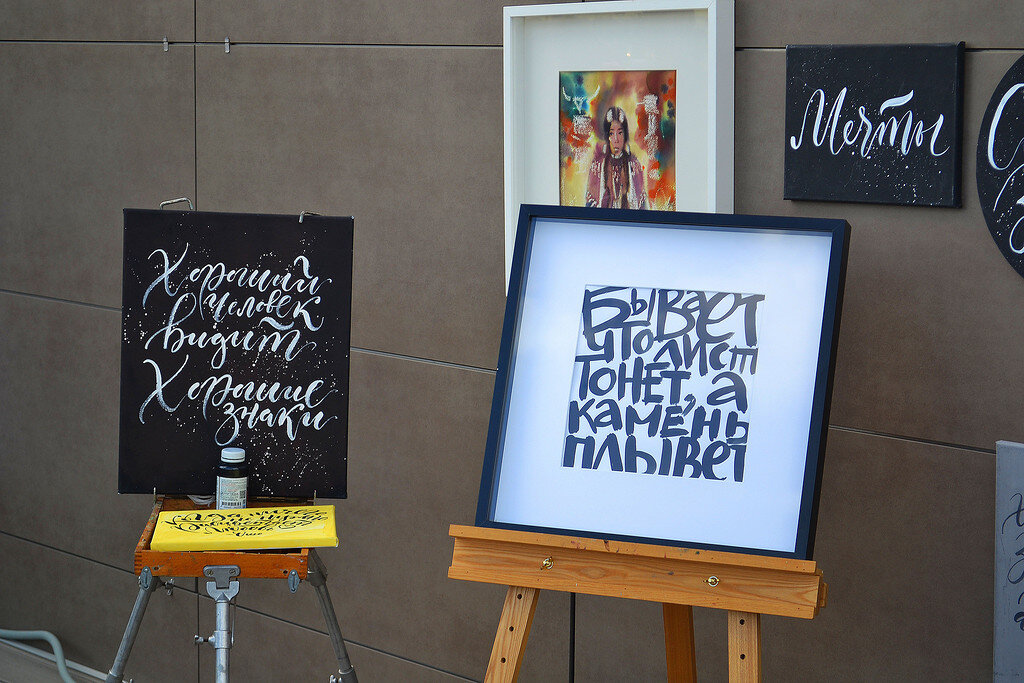 Хороший
человек
видит
Хорошие
знаки
Бывает
что лист
тонет, а
камень
плывет
Мечты